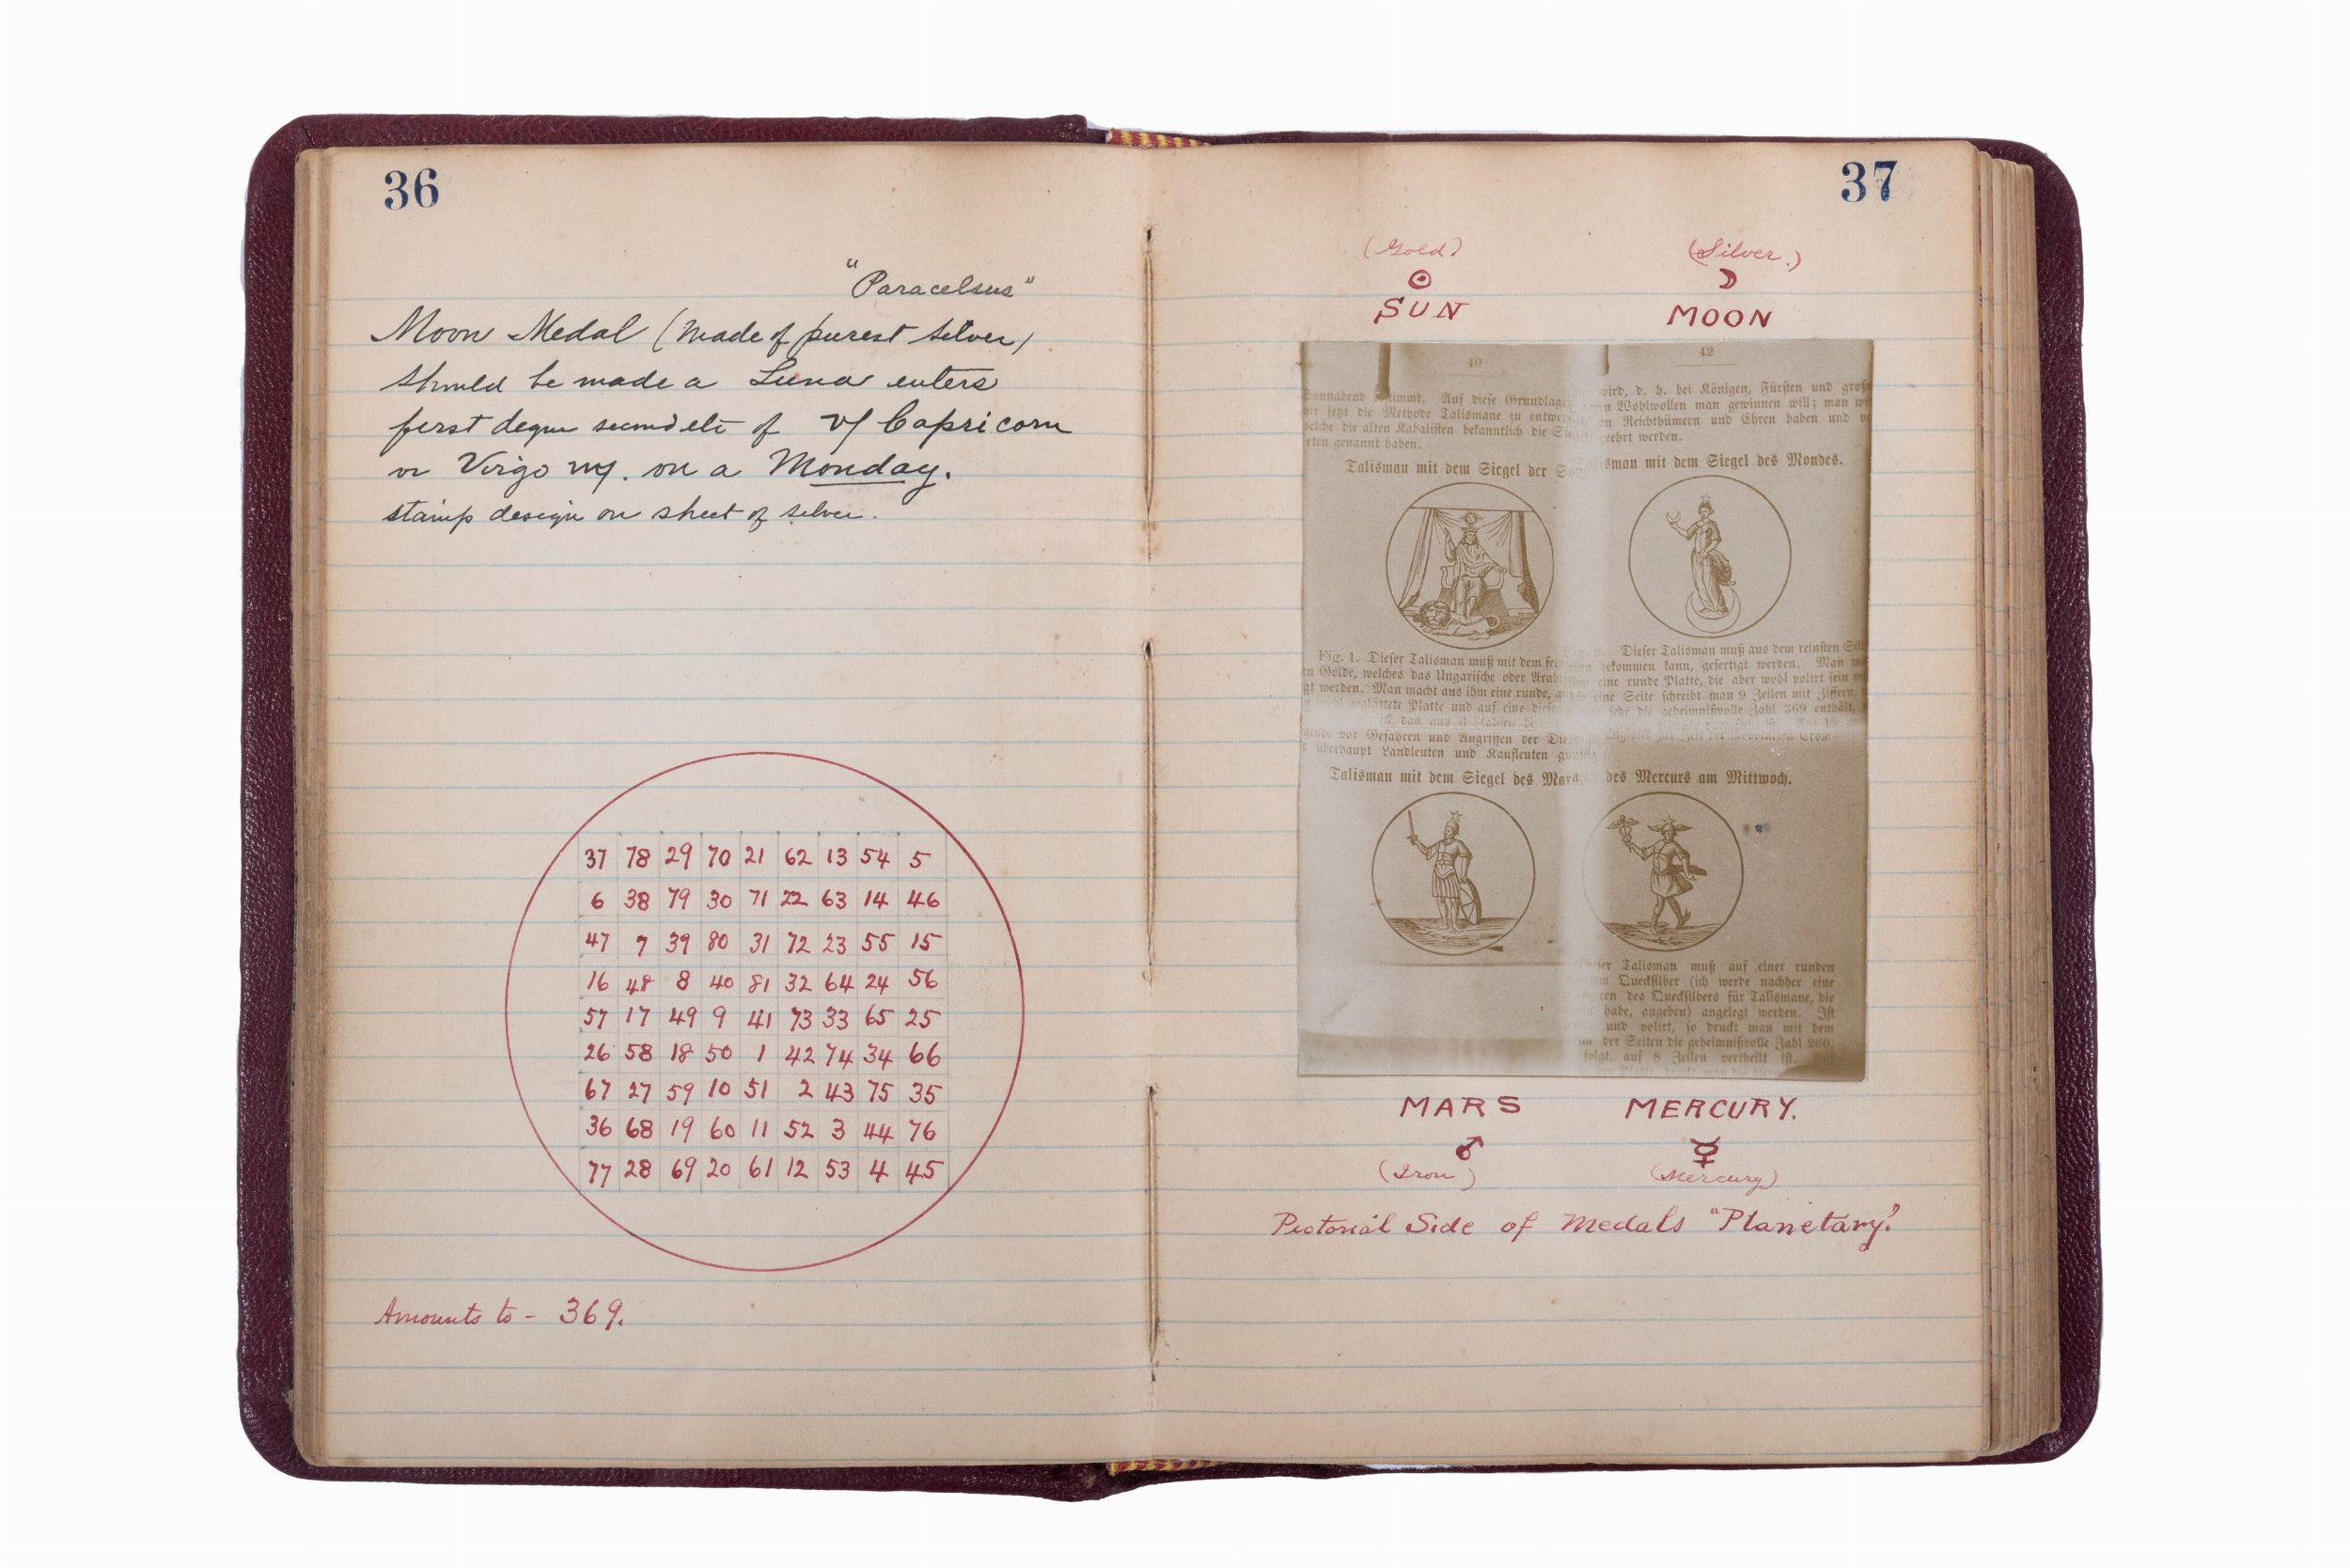 36
"Paracelsus"
Moon Medal (Made of purest silver)
should be made a Luna enters
first degree of ♑ Capricorn
or Virgo ♍. on a Monday.
stamp design on sheet of silver.
37 78 29 70 21 62 13 54 5
6 38 79 30 71 22 63 14 46
47 7 39 80 31 72 23 55 15
16 48 8 40 81 32 64 24 56
57 17 49 9 41 73 33 65 25
26 58 18 50 1 42 74 34 66
67 27 59 10 51 2 43 75 35
36 68 19 60 11 52 3 44 76
77 28 69 20 61 12 53 4 45
Amounts to - 369.
37
(Gold) (Silver.)
☉ ☽
SUN MOON
40
Auf diese Grundlagen
jetzt die Methode Talismane zu
die alten Kabalisten bekanntlich die
genannt haben.
Talisman mit dem Siegel der
Fig. 1. Dieser Talisman muß mit dem
Golde, welches das Ungarische oder
werden. Man macht aus ihm eine runde,
geglättete Platte und auf eine dieser
vor Gefahren und Angriffen der
überhaupt Landleuten und Kaufleuten
Talisman mit dem Siegel des Mars
42
wird, d. h. bei Königen, Fürsten und
Wohlwollen man gewinnen will; man
an Reichthümern und Ehren haben und
geehrt werden.
mit dem Siegel des Mondes.
Dieser Talisman muß aus dem reinsten
bekommen kann, gefertigt werden. Man
eine runde Platte, die aber wohl polirt sein
eine Seite schreibt man 9 Zeilen mit Ziffern,
jede die geheimnißvolle Zahl 369 enthält,
des Mercurs am Mittwoch.
Talisman muß auf einer runden
Quecksilber (ich werde nachher eine
des Quecksilbers für Talismane, die
habe, angeben) angelegt werden. Ist
und polirt, so druckt man mit dem
der Seiten die geheimnißvolle Zahl 260,
folgt, auf 8 Zeilen vertheilt ist.
MARS MERCURY.
♂ ☿
(Iron) (Mercury)
Pictorial Side of Medals "Planetary."